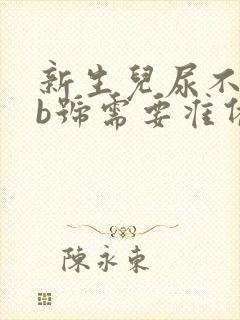 新生兒尿不
b號需要准
陳永東